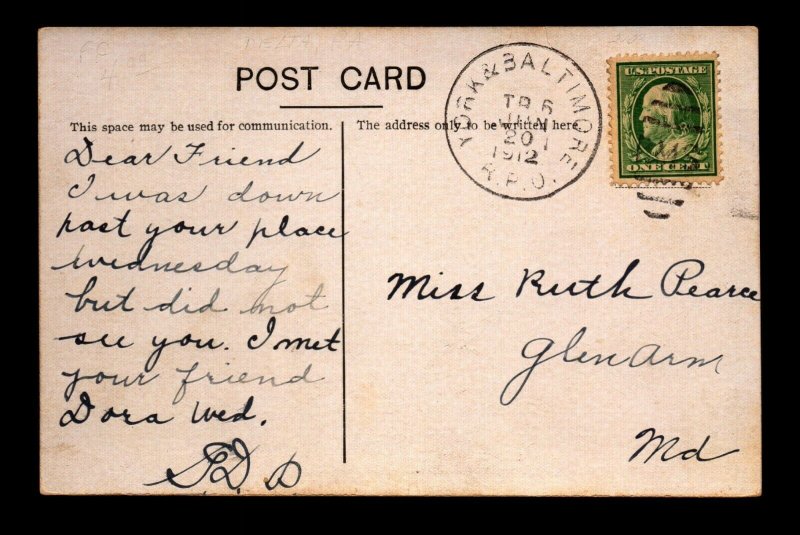 POST CARD
This space may be used for communication.
The address only to be written here.
YORK & BALTIMORE
TR 6
JUN
20
1912
R.P.O.
U.S. POSTAGE
ONE CENT
Dear Friend
I was down
past your place
wednesday
but did not
see you. I met
your friend
Dora Wed.
Miss Ruth Pearce
Glenarm
Md